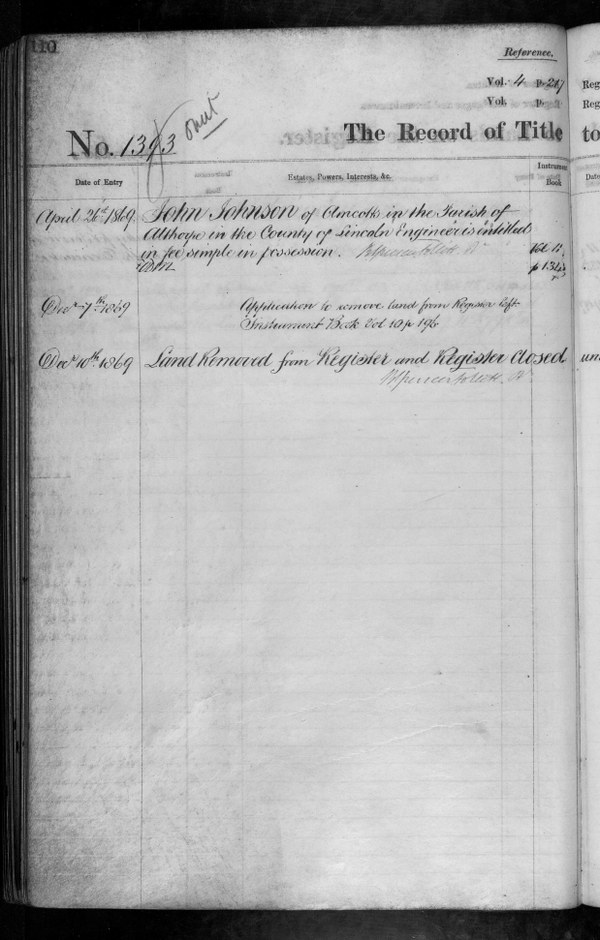 110
Reference.
Vol. 4 p. 217
Vol. p.
No. 1393
The Record of Title
Date of Entry
Estates, Powers, Interests, &c.
Instrument
Book
April 26 1869
John Johnson of Amcotts in the Parish of
Althorpe in the County of Lincoln Engineer is entitled
in fee simple in possession.
Vol 12
Decr 7th 1869
Application to remove land from Register left
Instrument Book Vol 10 p 196
Decr 10th 1869
Land Removed from Register and Register Closed
to
Reg
Reg
Date